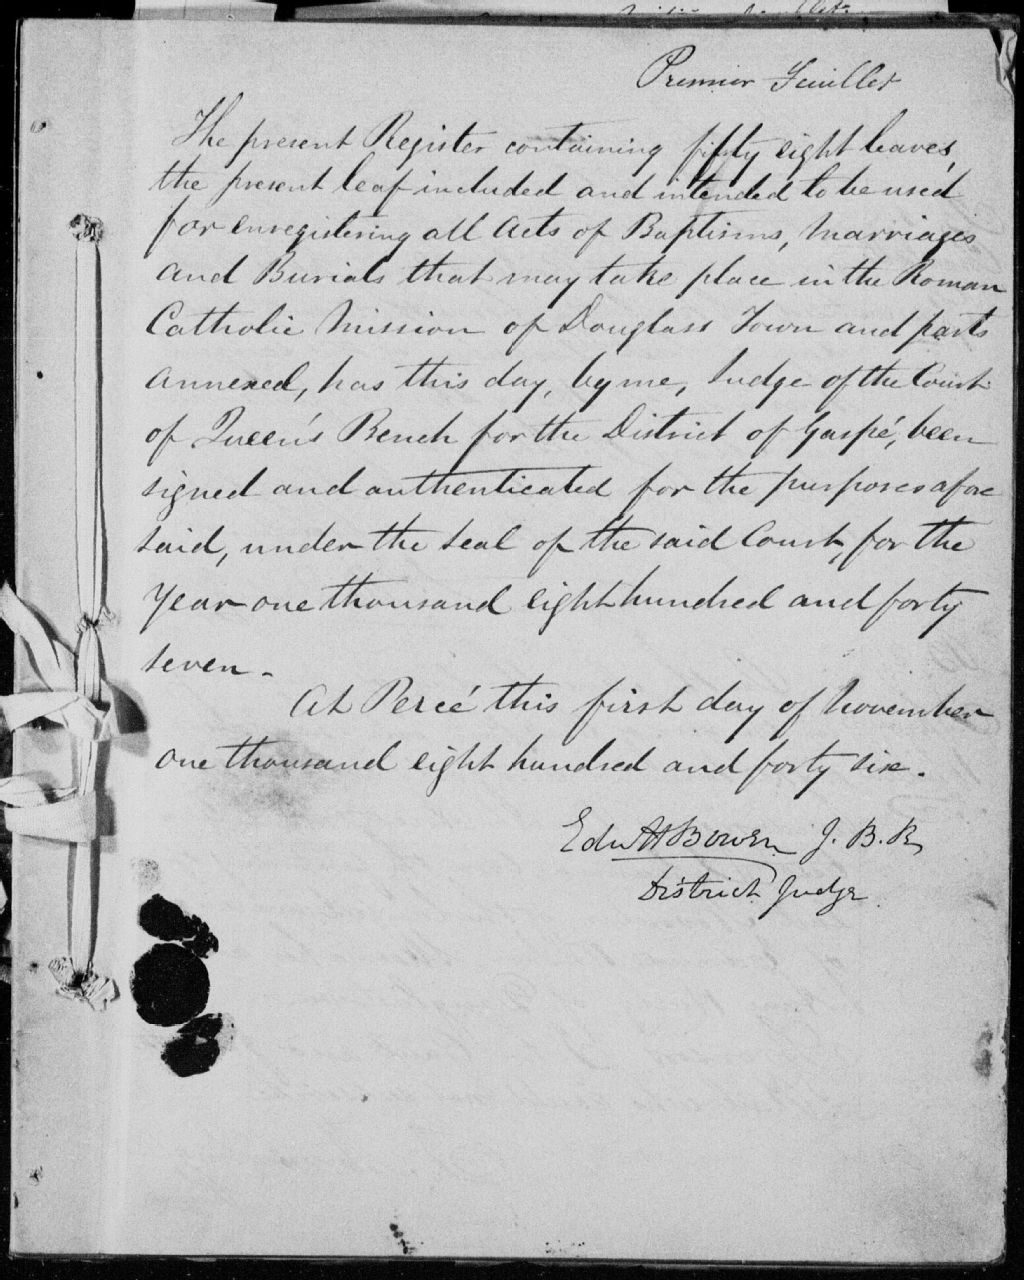 Premier Feuillet
The present Register containing fifty eight leaves,
the present leaf included and intended to be used
for enregistering all Acts of Baptisms, Marriages
and Burials that may take place in the Roman
Catholic Mission of Douglass Town and parts
annexed, has this day, by me, Judge of the Court
of Queen's Bench for the District of Gaspé, been
signed and authenticated for the purposes afore
said, under the seal of the said Court, for the
year one thousand eight hundred and forty
seven.
At Percé this first day of November
one thousand eight hundred and forty six.
Edw Bowen J. B. R.
District Judge.